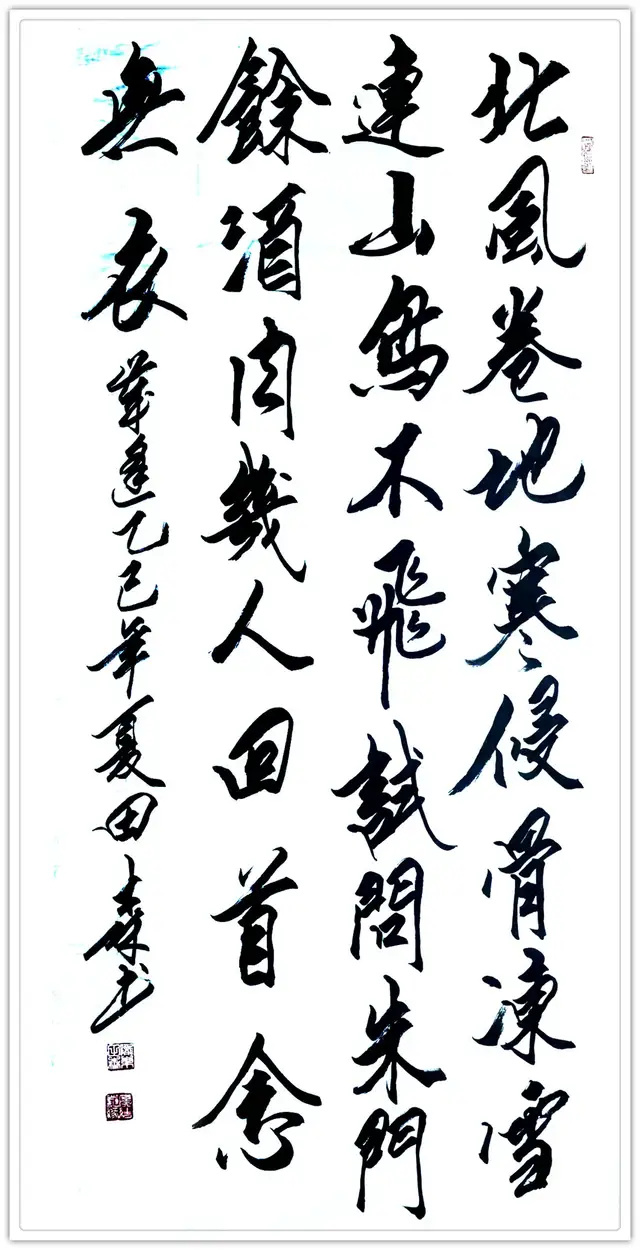 北風卷地寒侵骨凍雪
連山鳥不飛試問朱門
餘酒肉幾人回首念
無衣 歲逢乙巳年夏田森书